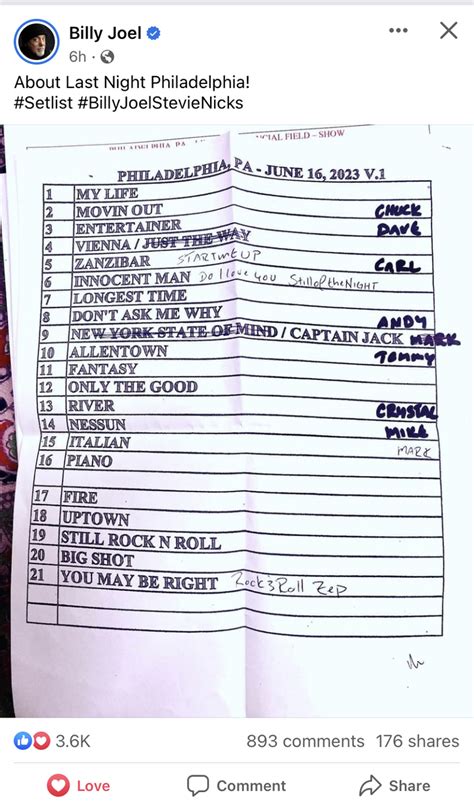 Billy Joel
6h
About Last Night Philadelphia!
#Setlist #BillyJoelStevieNicks
CIAL FIELD – SHOW
PHILADELPHIA, PA - JUNE 16, 2023 V.1
1 MY LIFE
2 MOVIN OUT CHUCK
3 ENTERTAINER DAVE
4 VIENNA / JUST THE WAY
5 ZANZIBAR START ME UP CARL
6 INNOCENT MAN Do I love you Still of the NIGHT
7 LONGEST TIME
8 DON'T ASK ME WHY ANDY
9 NEW YORK STATE OF MIND / CAPTAIN JACK MARK
10 ALLENTOWN TOMMY
11 FANTASY
12 ONLY THE GOOD
13 RIVER CRYSTAL
14 NESSUN MIKE
15 ITALIAN MARK
16 PIANO
17 FIRE
18 UPTOWN
19 STILL ROCK N ROLL
20 BIG SHOT
21 YOU MAY BE RIGHT Rock & Roll Zep
3.6K 893 comments 176 shares
Love Comment Share